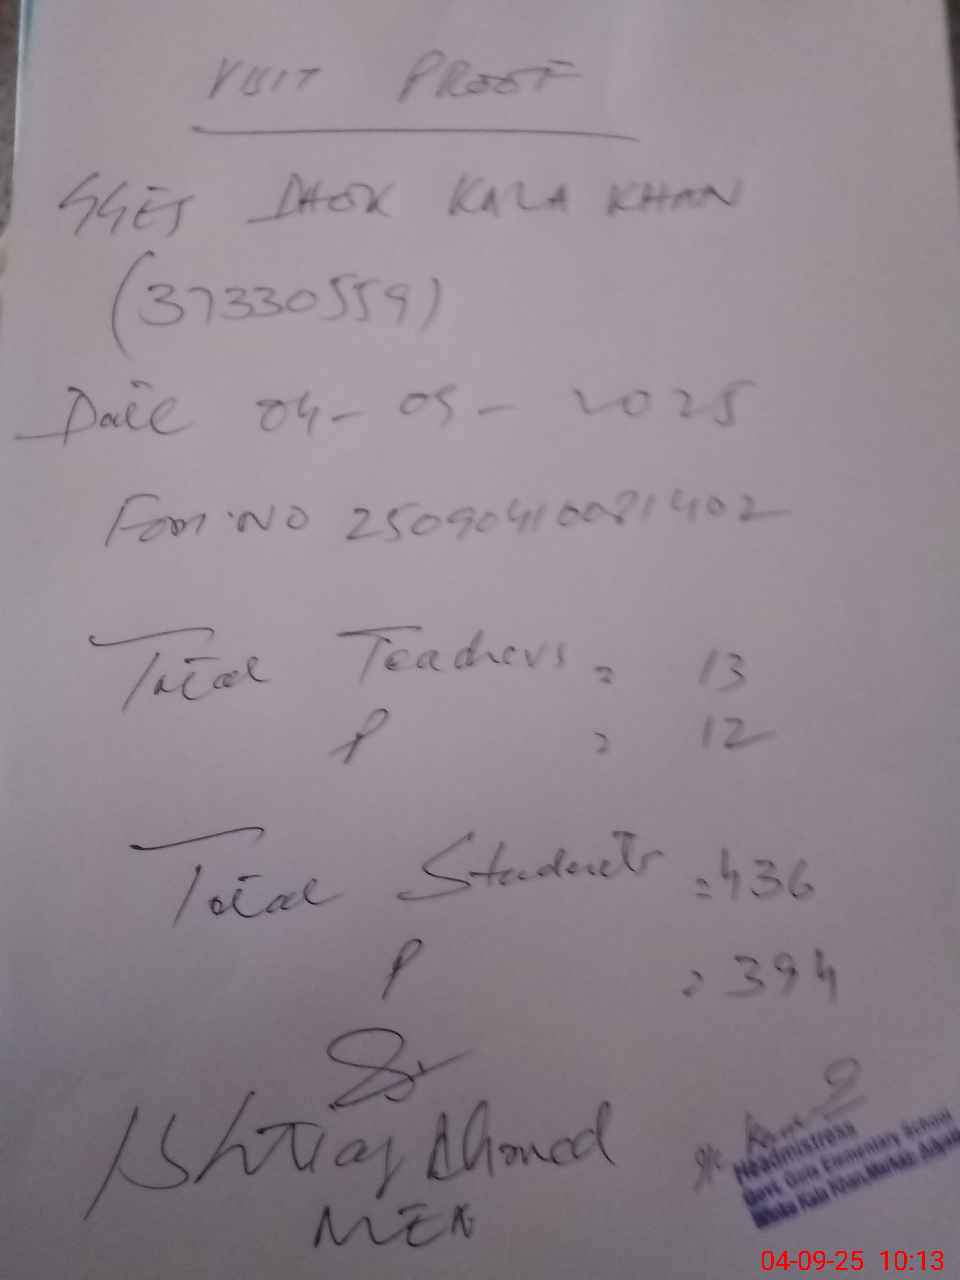 VISIT PROOF
GGES DHOK KALA KHAN
(37330559)
Date 04-09-2025
Form NO 25090410081402
Total Teachers = 13
P = 12
Total Students = 436
P = 394
Ishtiaq Ahmed
MEA
Headmistress
Govt. Girls Elementary School
Dhoke Kala Khan, Markaz
04-09-25 10:13